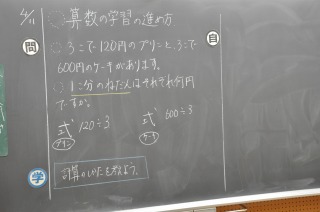 4/11
算数の学習の進め方
問
自
3こで120円のプリンと、3こで
600円のケーキがあります。
1こ分のねだんはそれぞれ何円
ですか。
式 120÷3
プリン
式 600÷3
ケーキ
学
計算のしかたを考えよう。